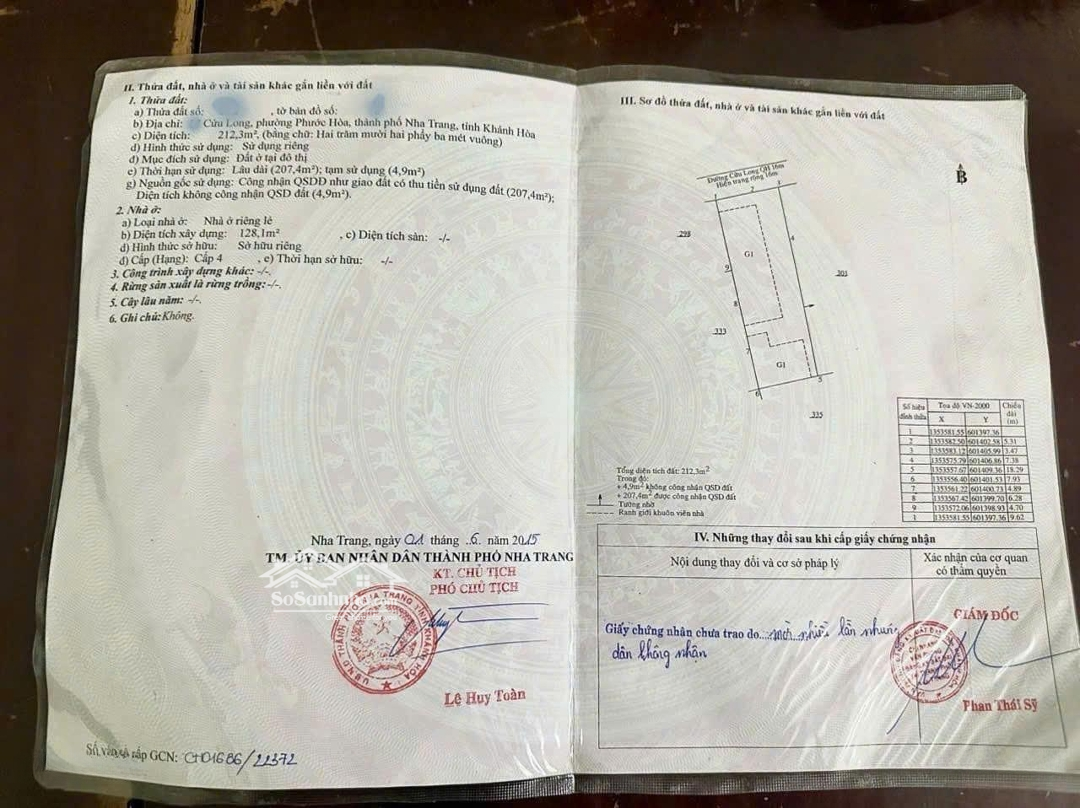 II. Thửa đất, nhà ở và tài sản khác gắn liền với đất
1. Thửa đất:
a) Thửa đất số: , tờ bản đồ số:
b) Địa chỉ: Cửu Long, phường Phước Hòa, thành phố Nha Trang, tỉnh Khánh Hòa
c) Diện tích: 212,3m², (bằng chữ: Hai trăm mười hai phẩy ba mét vuông)
d) Hình thức sử dụng: Sử dụng riêng
đ) Mục đích sử dụng: Đất ở tại đô thị
e) Thời hạn sử dụng: Lâu dài (207,4m²); tạm sử dụng (4,9m²)
g) Nguồn gốc sử dụng: Công nhận QSDĐ như giao đất có thu tiền sử dụng đất (207,4m²);
Diện tích không công nhận QSD đất (4,9m²).
2. Nhà ở:
a) Loại nhà ở: Nhà ở riêng lẻ
b) Diện tích xây dựng: 128,1m² , c) Diện tích sàn: -/-
d) Hình thức sở hữu: Sở hữu riêng
đ) Cấp (Hạng): Cấp 4 , e) Thời hạn sở hữu: -/-
3. Công trình xây dựng khác: -/-.
4. Rừng sản xuất là rừng trồng: -/-.
5. Cây lâu năm: -/-.
6. Ghi chú: Không.
Nha Trang, ngày 01 tháng .6. năm 2015
TM. ỦY BAN NHÂN DÂN THÀNH PHỐ NHA TRANG
KT. CHỦ TỊCH
PHÓ CHỦ TỊCH
SoSanhnha.com
U.B.N.D THÀNH PHỐ NHA TRANG TỈNH KHÁNH HÒA
Lê Huy Toàn
Số vào sổ cấp GCN: CH01686/22372
III. Sơ đồ thửa đất, nhà ở và tài sản khác gắn liền với đất
Đường Cửu Long QH 16m
Hiện trạng rộng 16m
B
1 2 3
298
4
G1
9
301
8
333
7
G1
6
5
335
Số hiệu đỉnh thửa Tọa độ VN-2000 Chiều dài (m)
X Y
1 1353581.55 601397.36
2 1353582.50 601402.58 5.31
3 1353583.12 601405.99 3.47
4 1353575.79 601406.86 7.38
5 1353557.67 601409.36 18.29
6 1353556.40 601401.53 7.93
7 1353561.22 601400.73 4.89
8 1353567.42 601399.70 6.28
9 1353572.06 601398.93 4.70
1 1353581.55 601397.36 9.62
Tổng diện tích đất: 212,3m²
Trong đó:
+ 4,9m² không công nhận QSD đất
+ 207,4m² được công nhận QSD đất
Tường nhờ
Ranh giới khuôn viên nhà
IV. Những thay đổi sau khi cấp giấy chứng nhận
Nội dung thay đổi và cơ sở pháp lý
Xác nhận của cơ quan
có thẩm quyền
Giấy chứng nhận chưa trao do....mời..nhiều lần nhưng
dân không nhận
GIÁM ĐỐC
Phan Thái Sỹ